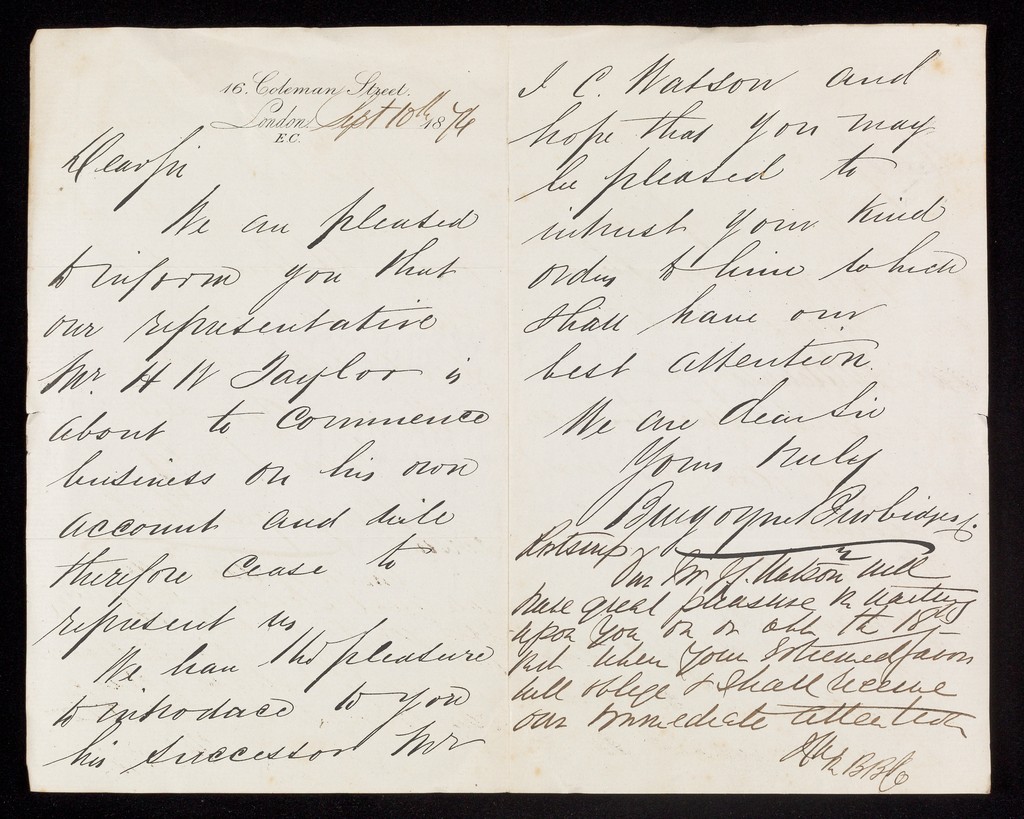 16. Coleman Street.
London, Sept 10th 1876
E.C.
Dear Sir
We are pleased
to inform you that
our representative
Mr. H W Taylor is
about to commence
business on his own
account and will
therefore cease to
represent us
We have the pleasure
to introduce to you
his successor Mr
J C. Watson and
hope that you may
be pleased to
intrust your kind
orders to him which
shall have our
best attention.
We are dear Sir
Yours truly
Burgoyne Burbidges &
Our Mr J. Watson will
have great pleasure in waiting
upon you on or abt the 18th
inst when your esteemed favors
will oblige & shall receive
our immediate attention
BB&Co